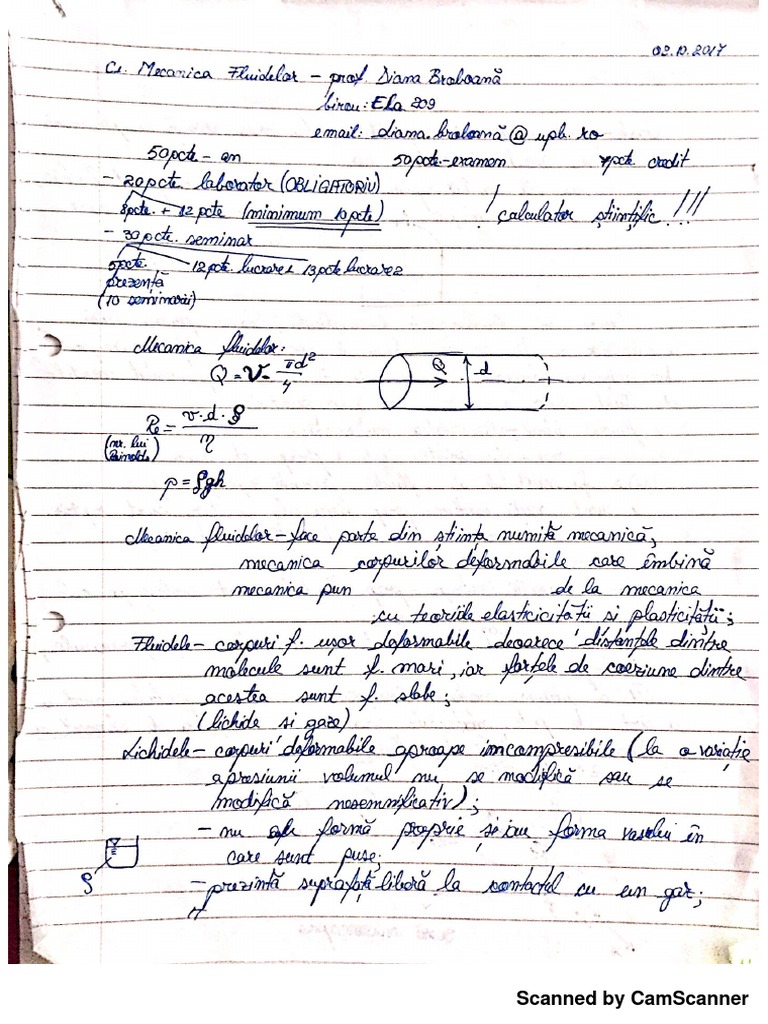 02.10.2017
C1. Mecanica Fluidelor – prof. Diana Broboană
birou: ELa 209
email: diana.broboană@upb.ro
50pcte – an 50pcte – examen pcte credit
– 20pcte. laborator (OBLIGATORIU)
8pcte. + 12 pcte (minimum 10pcte) ! calculator științific !!!
– 30pcte. seminar
5pcte. 12pcte. lucrare1 13pcte lucrare2
prezență
(10 seminarii)
Mecanica fluidelor:
Q = v · πd²/4
Q d
Re = v·d·ρ / η
(nr. lui
p = ρgh
Mecanica fluidelor – face parte din știința numită mecanică,
mecanica corpurilor deformabile care îmbină
mecanica pun de la mecanica
cu teoriile elasticității si plasticității;
Fluidele – corpuri f. ușor deformabile deoarece distanțele dintre
molecule sunt f. mari, iar forțele de coeziune dintre
acestea sunt f. slabe;
(lichide si gaze)
Lichidele – corpuri deformabile aproape imcompresibile (la o variație
a presiunii volumul nu se modifică sau se
modifică nesemnificativ);
– nu formă proprie și iau forma vasului în
care sunt puse;
ρ
– prezintă suprafață liberă la contactul cu un gaz;
Scanned by CamScanner